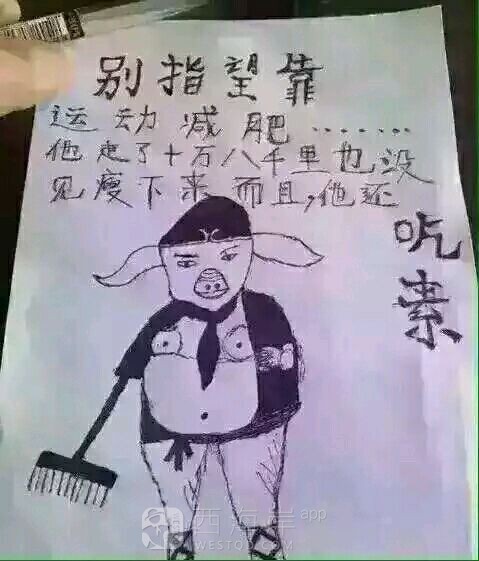 别指望靠
运动减肥.......
他走了十万八千里也没
见瘦下来 而且,他还
吃素
西海岸app